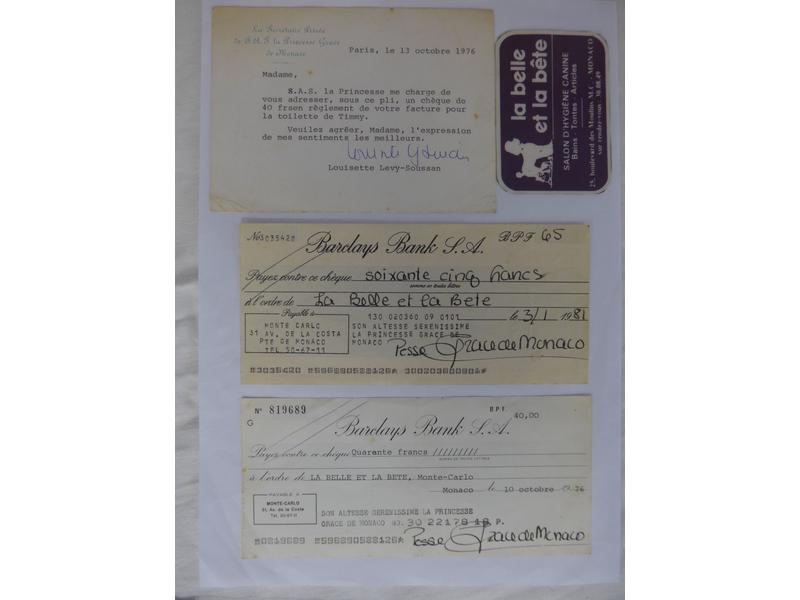 La Secrétaire Privée
de S.A.S. la Princesse Grace
de Monaco
Paris, le 13 octobre 1976
Madame,
S.A.S. la Princesse me charge de
vous adresser, sous ce pli, un chèque de
40 frsen règlement de votre facture pour
la toilette de Timmy.
Veuilez agréer, Madame, l'expression
de mes sentiments les meilleurs.
Louisette Levy-Soussan
la belle
et la bête
SALON D'HYGIÈNE CANINE
Bains - Tontes - Articles
25, boulevard des Moulins M.C. - MONACO
sur rendez-vous : 30.88.49
No 3035420
Barclays Bank S.A.
BPF 65
Payez contre ce chèque soixante cinq francs
somme en toutes lettres
à l'ordre de La Belle et la Bete
Payable à
130 020360 09 0101
le 3/1 1981
MONTE CARLO
31 AV. DE LA COSTA
PTE DE MONACO
TEL 50-67-11
SON ALTESSE SERENISSIME
LA PRINCESSE GRACE DE
MONACO
Psse Grace de Monaco
N° 819689
G
B.P.F. 40,00
Barclays Bank S.A.
Payez contre ce chèque Quarante francs //////////
à l'ordre de LA BELLE ET LA BETE, Monte-Carlo
Monaco le 10 octobre 1976
PAYABLE A
MONTE-CARLO
31, Av. de la Costa
SON ALTESSE SERENISSIME LA PRINCESSE
GRACE DE MONACO NO. 30 22178 18 P.
Psse Grace de Monaco